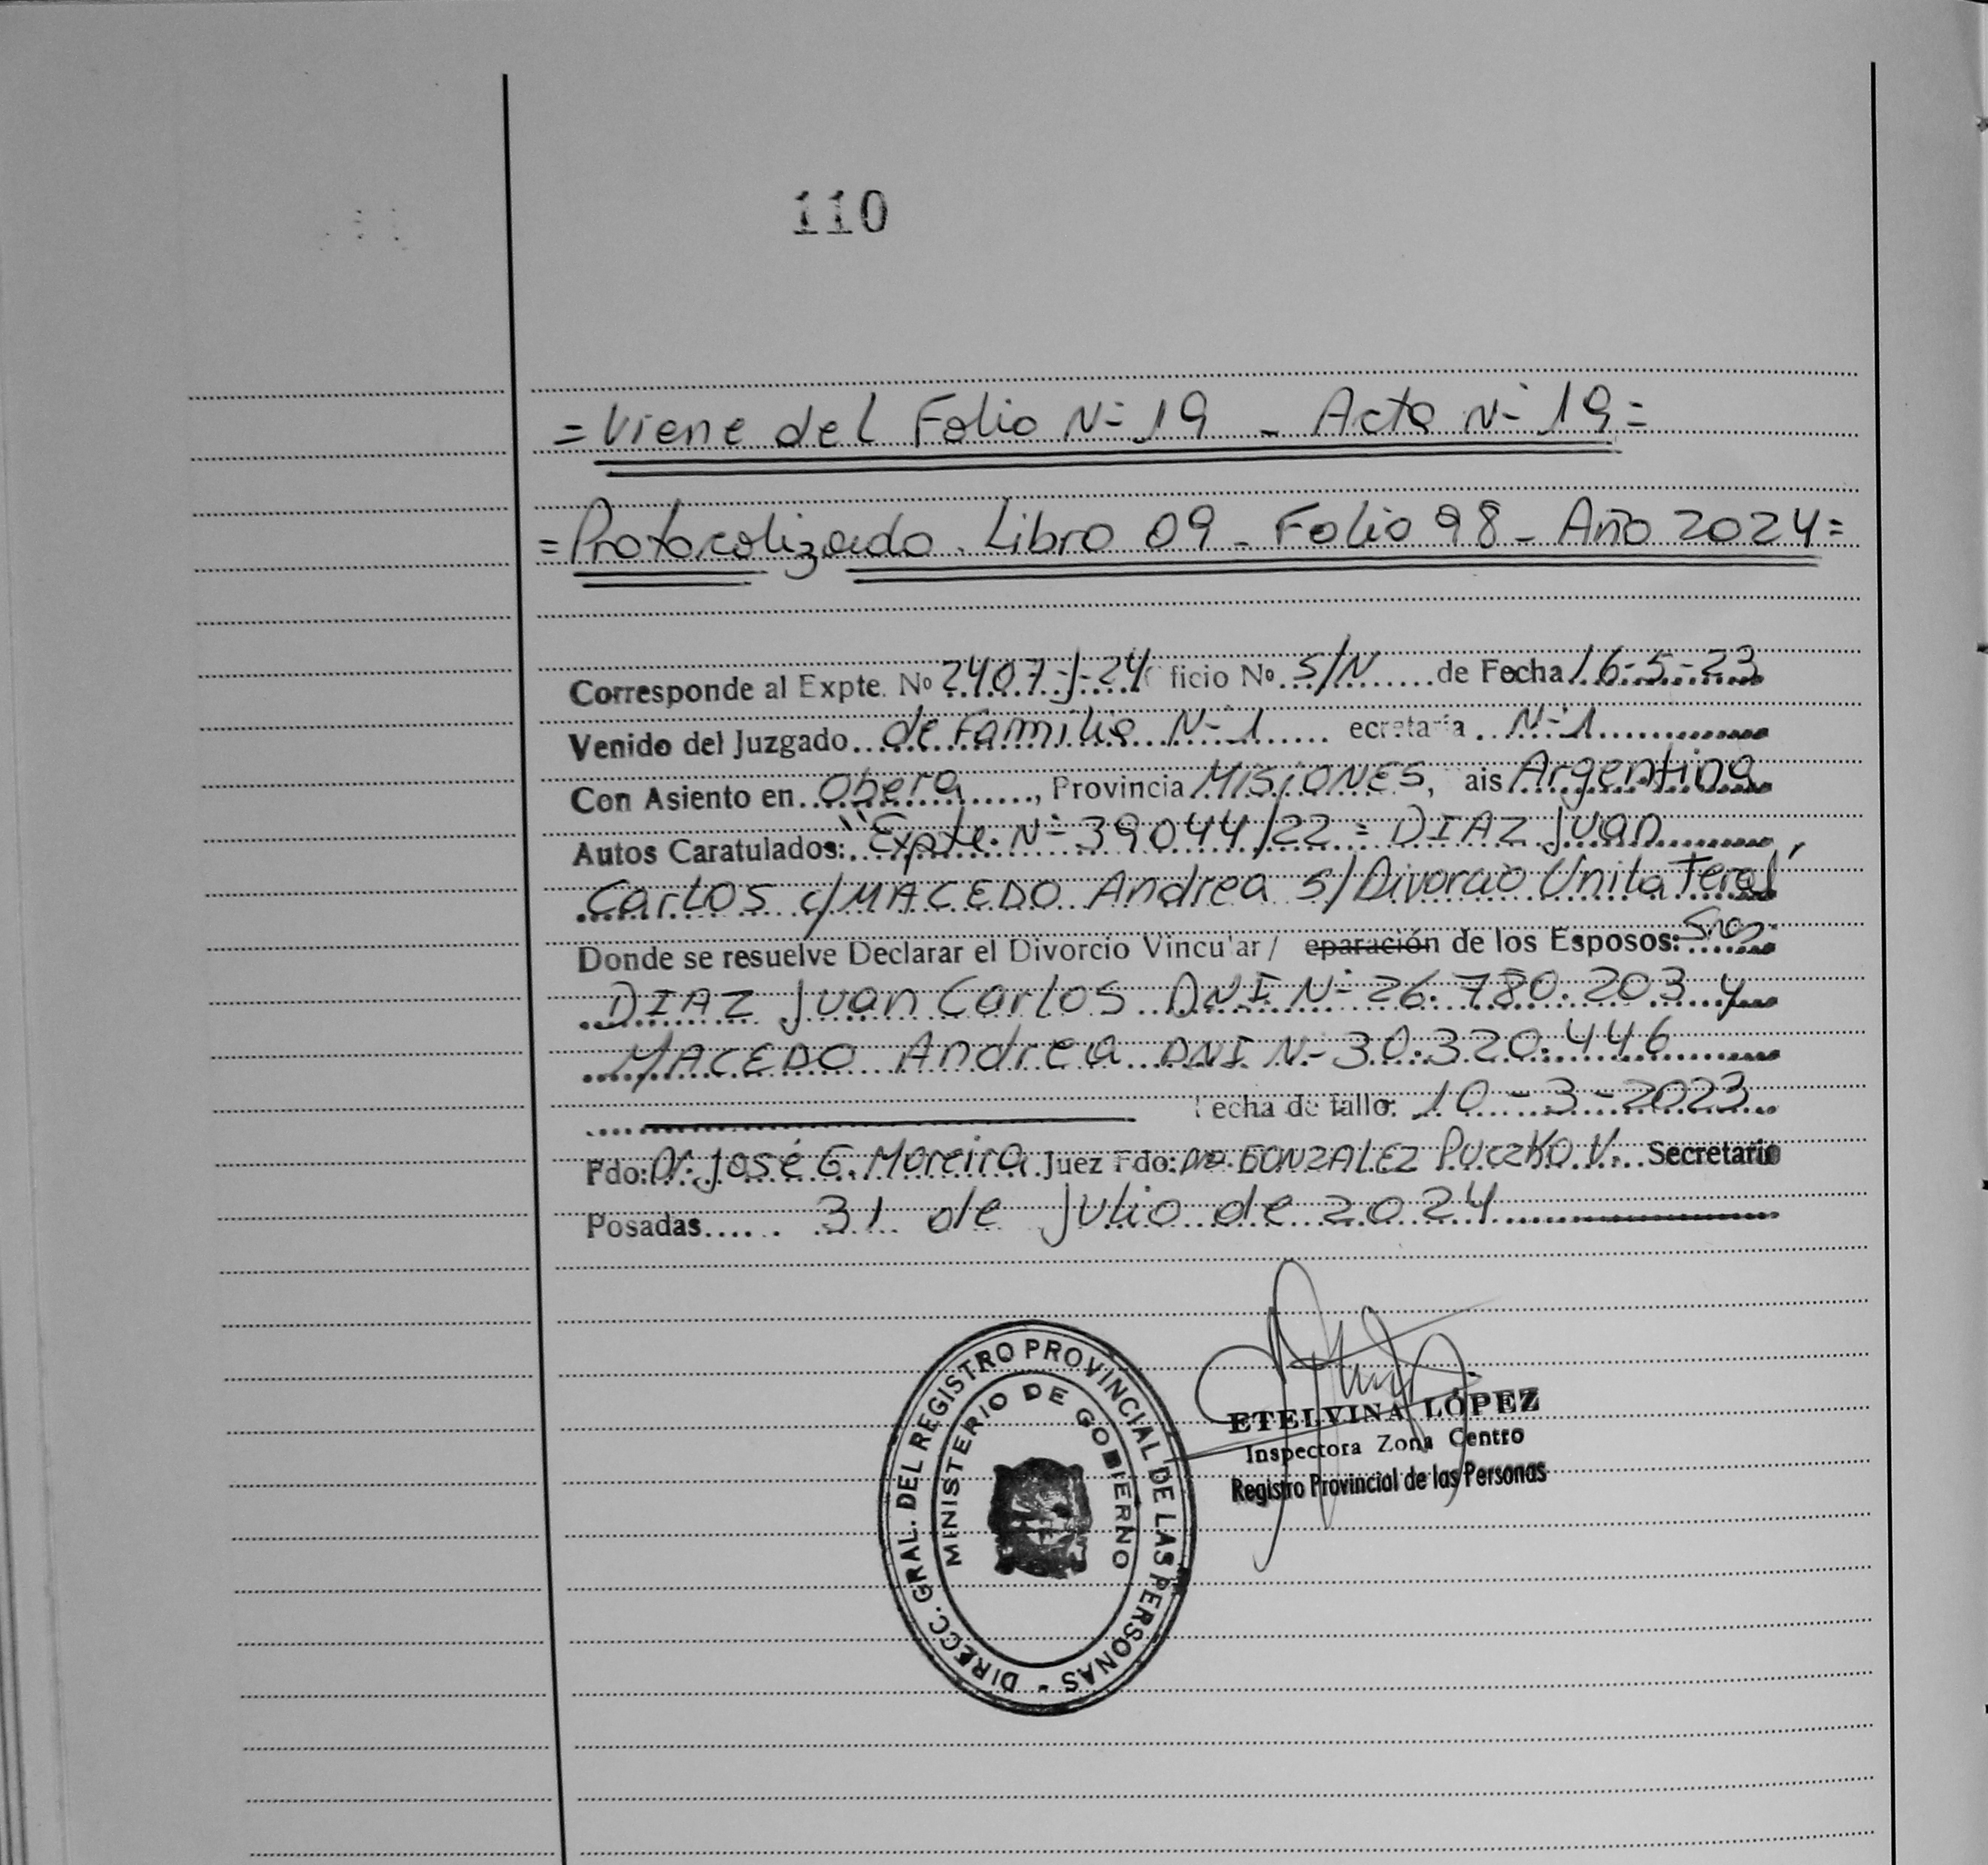 110
= Viene del Folio Nº 19 - Acta Nº 19 =
= Protocolizado. Libro 09 - Folio 98 - Año 2024 =
Corresponde al Expte. Nº 2407-J-24 ficio Nº S/N de Fecha 16-5-23
Venido del Juzgado de Familia Nº 1 ecretaría Nº 1
Con Asiento en Obera, Provincia MISIONES, ais Argentina
Autos Caratulados: "Expte. Nº 39044/22 = DIAZ Juan
Carlos c/MACEDO Andrea S/Divorcio Unilateral"
Donde se resuelve Declarar el Divorcio Vincular / eparación de los Esposos: Sres.
DIAZ Juan Carlos DNI Nº 26.780.203 y
MACEDO Andrea DNI Nº 30.320.446
Fecha de fallo: 10-3-2023
Fdo: Dr. José G. Moreira Juez Fdo: GONZALEZ PUCZKO V. Secretario
Posadas 31 de Julio de 2024
DIRECC. GRAL. DEL REGISTRO PROVINCIAL DE LAS PERSONAS -
MINISTERIO DE GOBIERNO
ETELVINA LÓPEZ
Inspectora Zona Centro
Registro Provincial de las Personas